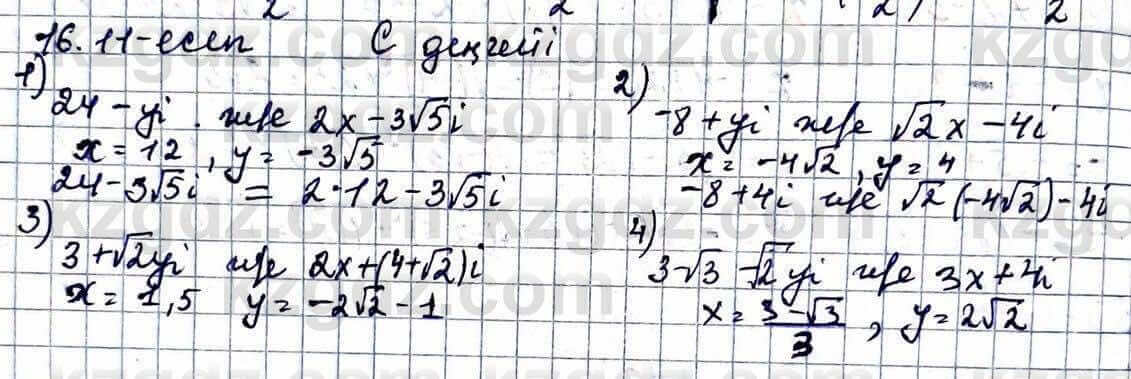 16.11-есеп С деңгейі
1)
24 - yi және 2x - 3√5i
x = 12, y = -3√5
24 - 3√5i = 2·12 - 3√5i
2)
-8 + yi және √2x - 4i
x = -4√2, y = 4
-8 + 4i және √2(-4√2) - 4i
3)
3 + √2yi және 2x + (4 + √2)i
x = 1,5 y = -2√2 - 1
4)
3 - √3 - √2yi және 3x + 4i
x = (3 - √3)/3, y = 2√2